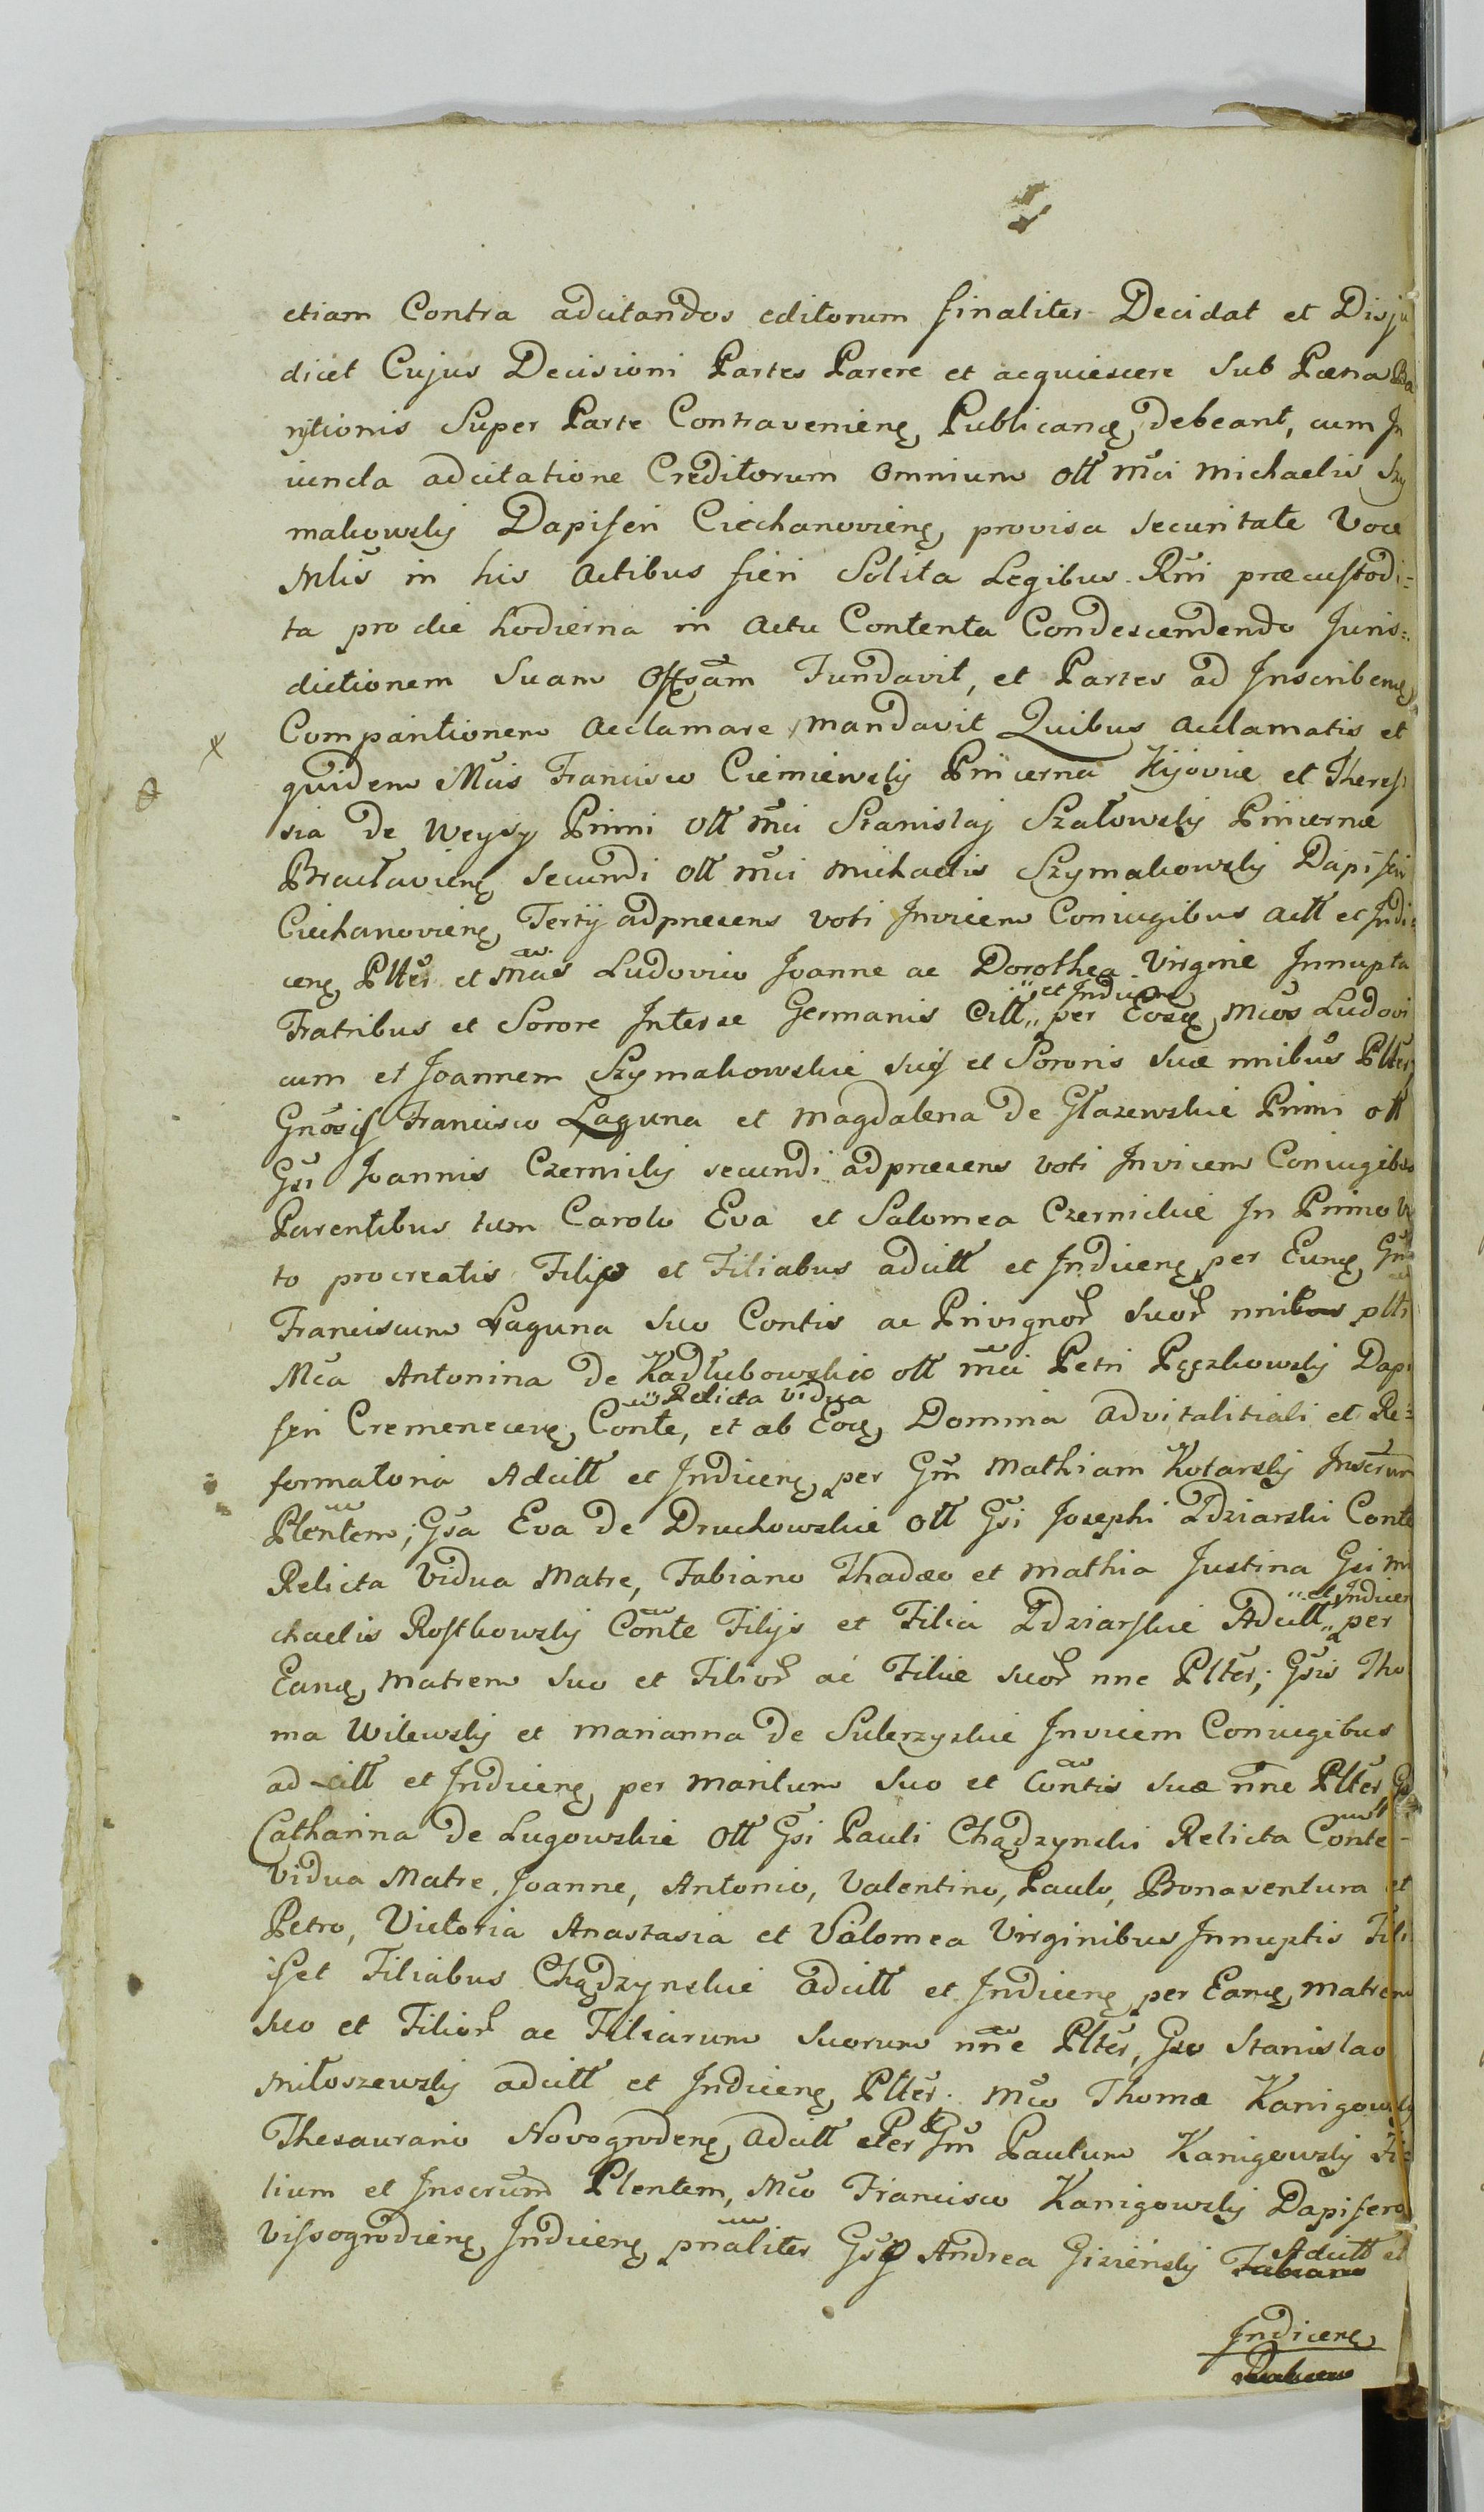 etiam Contra adcitandos editorum finaliter Decidat et Disju
dicet Cujus Decisioni Partes Parere et acquiescere sub Pœna Ba
nitionis Super Parte Contravenienę Publicandę debeant, cum In
iuncta adcitatione Creditorum omnium ott mci Michaelis Szy
makowskij Dapiferi Ciechanovienę, provisa securitate Voce
Mlis in his Actibus fieri Solita Legibus Rni præcustodi=
ta pro die hodierna in Actu Contenta Condescendendo Juris=
dictionem Suam Offsam Fundavit, et Partes ad Inscribenę
Comparitionem Acclamare mandavit Quibus Acclamatis et
quidem Mcis Francisco Ciemiewskij Pincerna Kijoviæ et Theres
sia de Weysy Primi ott mci Stanislaj Szałowskij Pincernæ
Bracłavienę secundi ott mci Michaelis Szymakowskij Dapiferi
Ciechanovienę Tertij adpræsens voti Invicem Coniugibus actt et Indi=
cenę Plter et Mcis Ludovico Joanne ac Dorothea Virgine Innupta
Fratribus et Sorore Interse Germanis Citt et Indicenę per Eosę Mcos Ludovi
cum et Joannem Szymakowskie suij et Sororis suæ nnibus Plter,
Gnosis Francisco Laguna et Magdalena de Głazewskie Primi ott
Gsi Joannis Czernickij secundi adpræsens voti Invicem Coniugibus
Parentibus tum Carolo Eva et Salomea Czernickie In Primo Vo
to procreatis Filijs et Filiabus adcitt et Indicenę per Eunę Gnm
Franciscum Laguna suo Contis ac Privignor suor nnibus plter
Mca Antonina de Kadłubowskie ott mci Petri Pęczkowskij Dapi
feri Cremenecenę Conte, Relicta Vidua et ab Eoę Domina advitalitiali et Re=
formatoria Adcitt et Indicenę per Gm Mathiam Kotarskij Inscrum
Plentem; Gsa Eva de Druchowskie ott Gsi Josephi Zdziarski Conte
Relicta Vidua Matre, Fabiano Thadæo et Mathia Justina Gsi Mi
chaelis Rostkowskij Conte Filijs et Filia Zdziarskie Adcitt et Indicen per
Eanę Matrem suo et Filior ac Filiæ suor nne Plter; Gsis Tho
ma Wilewskij et Marianna de Sulerzyskie Invicem Coniugibus
ad citt et Indicenę per Maritum suo et Contis suæ nne Plter Gs
Catharina de Lugowskie ott Gsi Pauli Chądzynski Relicta Conte
Vidua Matre, Joanne, Antonio, Valentino, Paulo, Bonaventura et
Petro, Victoria Anastasia et Salomea Virginibus Innuptis Fili
is et Filiabus Chądzynskie Adcitt et Indicenę per Eanę Matrem
suo et Filior ac Filiarum Suorum nne Plter, Gso Stanislao
Miłoszewskij adcitt et Indicenę Plter. Mco Thomæ Kanigowskij
Thesaurario Novogrodenę Adcitt Per Gm Paulum Kanigowskij Fi=
lium et Inscrum Plentem, Mco Francisco Kanigowskij Dapifero
Vissogrodienę Indicenę pnaliter Gso Andrea Gizienskij Adcitt et
Indicenę